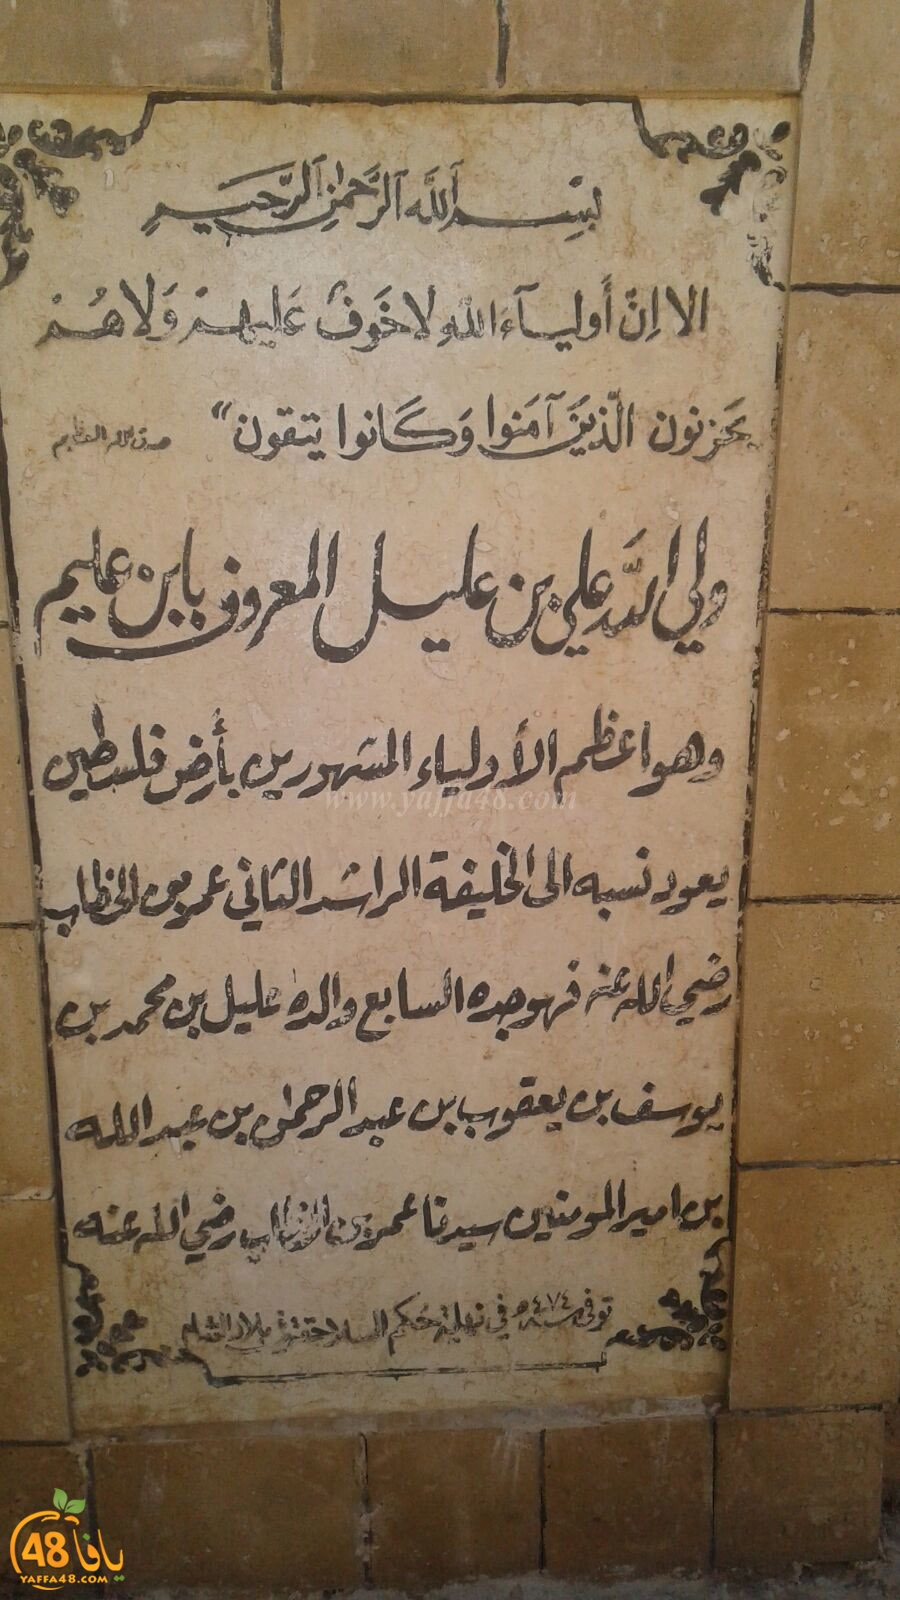 بِسْمِ اللَّهِ الرَّحْمٰنِ الرَّحِيمِ
الا اِنَّ أَولياءَ اللهِ لاخَوفٌ عَليهِمْ وَلاهُمْ
يَحزنون الّذينَ آمَنوا وَكَانوا يتقون"
صدق الله العظيم
ولي اللَّه علي بن عليل المعروف بابن عليم
وهو اعظم الأولياء المشهورين بأرض فلسطين
يعود نسبه الى الخليفة الراشد الثاني عمر بن الخطاب
رضي الله عنه فهو جده السابع والده عليل بن محمد بن
يوسف بن يعقوب بن عبد الرحمن بن عبد الله
بن امير المومنين سيدنا عمر بن الخطاب رضي الله عنه
توفي سنة ٤٧٤هـ في نهاية حُكم السلاجقة بلاد الشام
www.yaffa48.com
يافا 48
YAFFA48.COM